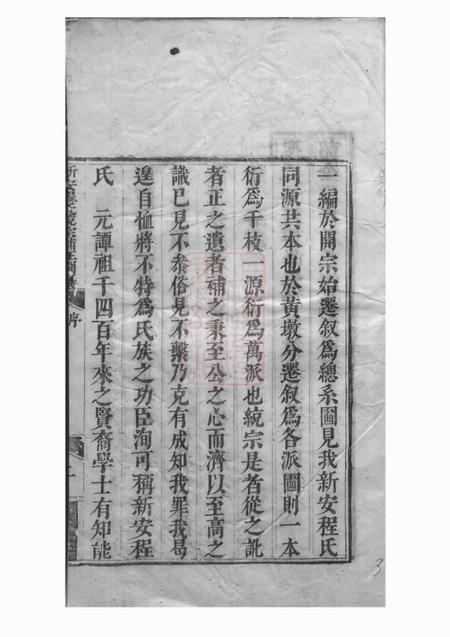 一編於開宗始遷叙爲總系圖見我新安程氏
同源共本也於黃墩分遷叙爲各派圖則一本
衍爲千枝一源衍爲萬派也統宗是者從之訛
者正之遺者補之秉至公之心而濟以至高之
識已見不叅俗見不繫乃克有成知我罪我曷
遑自恤將不特爲氏族之功臣洵可稱新安程
氏　元譚祖千四百年來之賢裔學士有知能
序
3